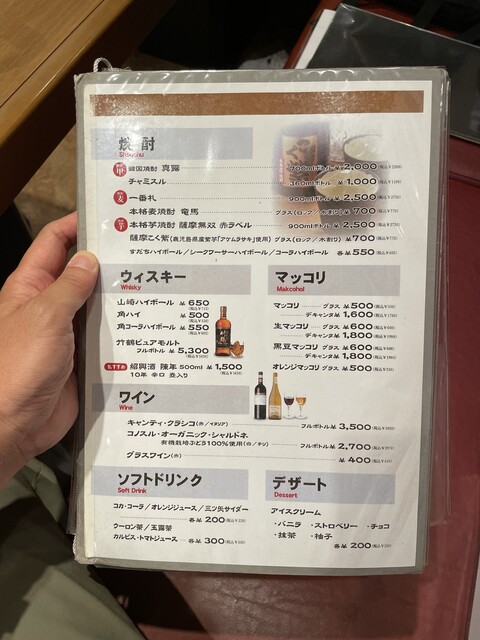 焼酎
Shouchu
韓国焼酎 真露 700mlボトル ¥2,000
チャミスル 360mlボトル ¥1,000
麦 一番札 900mlボトル ¥2,500
本格麦焼酎 竜馬 グラス(ロック/水割り) ¥700
芋 本格芋焼酎 薩摩無双 赤ラベル 900mlボトル ¥2,500
薩摩こく紫(鹿児島県産紫芋「アケムラサキ」使用) グラス(ロック/水割り) ¥700
すだちハイボール/シークワーサーハイボール/コーラハイボール 各¥550
ウィスキー
Whisky
山崎ハイボール ¥650
角ハイ ¥500
角コーラハイボール ¥550
竹鶴ピュアモルト
フルボトル ¥5,300
おすすめ 紹興酒 陳年 500ml ¥1,500
10年 辛口 壺入り
マッコリ
Makcohol
マッコリ グラス ¥500
デキャンタ ¥1,600
生マッコリ グラス ¥600
デキャンタ ¥1,800
黒豆マッコリ グラス ¥600
デキャンタ ¥1,800
オレンジマッコリ グラス ¥500
ワイン
Wine
キャンティ・クラシコ(赤/イタリア) フルボトル ¥3,500
コノスル・オーガニック・シャルドネ
有機栽培ぶどう100%使用(白/チリ) フルボトル ¥2,700
グラスワイン(赤) ¥400
ソフトドリンク
Soft Drink
コカ・コーラ/オレンジジュース/三ツ矢サイダー
各¥200
ウーロン茶/玉露茶
カルピス・トマトジュース 各¥300
デザート
Dessert
アイスクリーム
・バニラ ・ストロベリー ・チョコ
・抹茶 ・柚子
各¥200